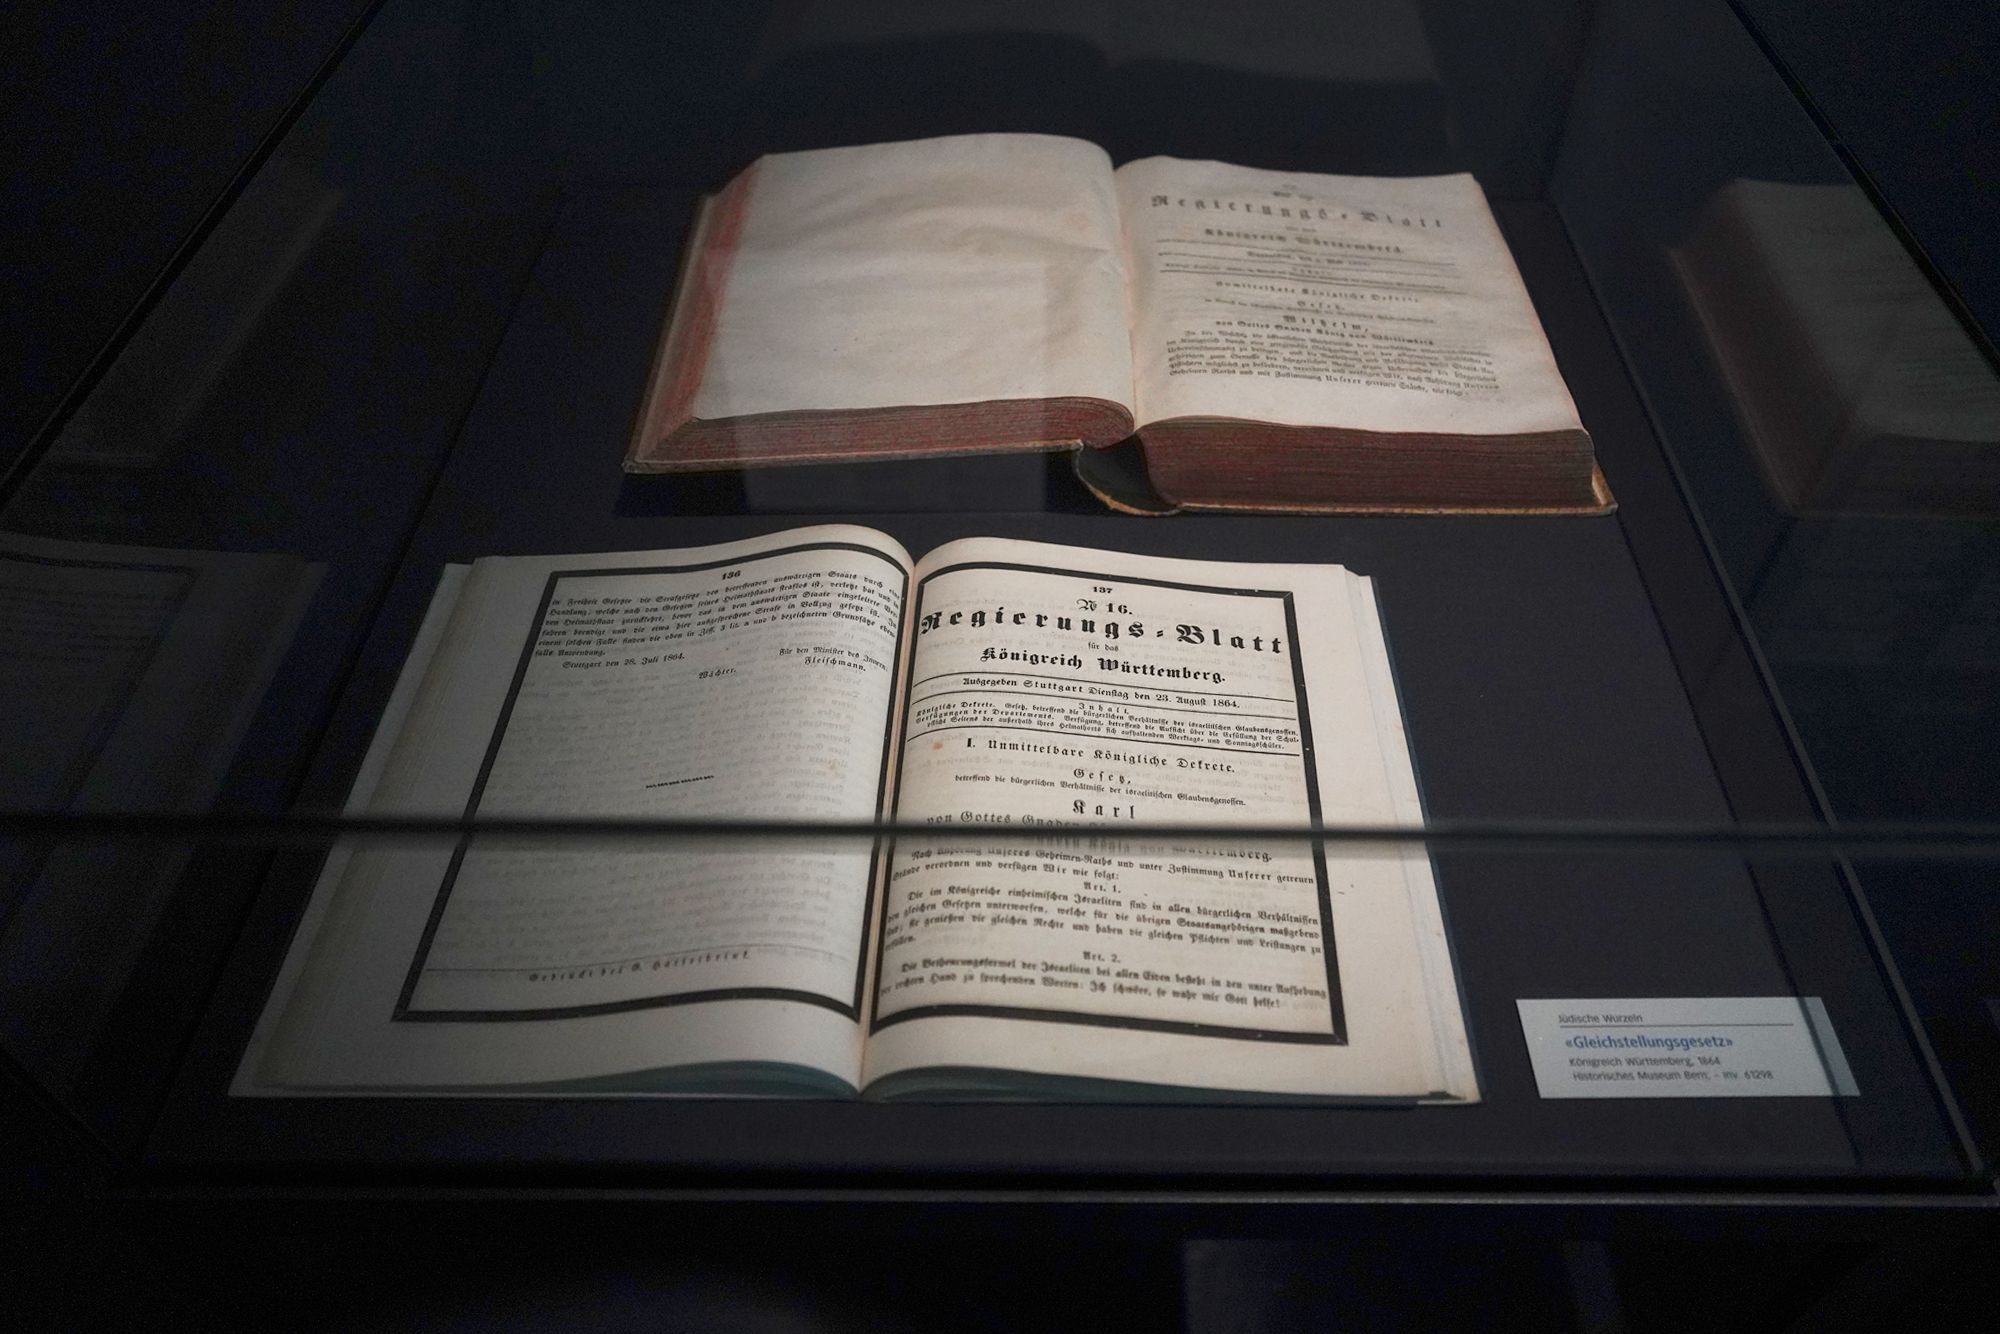 Regierungs-Blatt
Königreich Württemberg.
Unmittelbare Königliche Dekrete.
Gesetz,
Wilhelm,
von Gottes Gnaden König von Württemberg
Geheimen Raths und mit Zustimmung Unserer getreuen Stände, wie folgt:
136
in Freiheit Gesetzte die Strafgesetze des betreffenden auswärtigen Staats durch eine
Handlung, welche nach den Gesetzen seines Heimathstaats straflos ist, verletzt hat und in
den Heimathstaat zurückkehrt, bevor das in dem auswärtigen Staate eingeleitete Ver-
fahren beendigt und die etwa hier ausgesprochene Strafe in Vollzug gesetzt ist. In
einem solchen Falle finden die oben in Ziff. 3 lit. a und b bezeichneten Grundsätze eben-
falls Anwendung.
Stuttgart den 28. Juli 1864.
Für den Minister des Innern:
Wächter. Fleischmann.
Gedruckt bei G. Hasselbrink.
137
№ 16.
Regierungs-Blatt
für das
Königreich Württemberg.
Ausgegeben Stuttgart Dienstag den 23. August 1864.
Inhalt.
Königliche Dekrete. Gesetz, betreffend die bürgerlichen Verhältnisse der israelitischen Glaubensgenossen.
Verfügungen der Departements. Verfügung, betreffend die Aufsicht über die Erfüllung der Schul-
pflicht Seitens der außerhalb ihres Heimathorts sich aufhaltenden Werktags- und Sonntagsschüler.
I. Unmittelbare Königliche Dekrete.
Gesetz,
betreffend die bürgerlichen Verhältnisse der israelitischen Glaubensgenossen.
Karl
von Gottes Gnaden König von Württemberg.
Nach Anhörung Unseres Geheimen-Raths und unter Zustimmung Unserer getreuen
Stände verordnen und verfügen Wir wie folgt:
Art. 1.
Die im Königreiche einheimischen Israeliten sind in allen bürgerlichen Verhältnissen
den gleichen Gesetzen unterworfen, welche für die übrigen Staatsangehörigen maßgebend
sind; sie genießen die gleichen Rechte und haben die gleichen Pflichten und Leistungen zu
erfüllen.
Art. 2.
Die Betheurungsformel der Israeliten bei allen Eiden besteht in den unter Aufhebung
der rechten Hand zu sprechenden Worten: Ich schwöre, so wahr mir Gott helfe!
Jüdische Wurzeln
«Gleichstellungsgesetz»
Königreich Württemberg, 1864
Historisches Museum Bern, – Inv. 61298